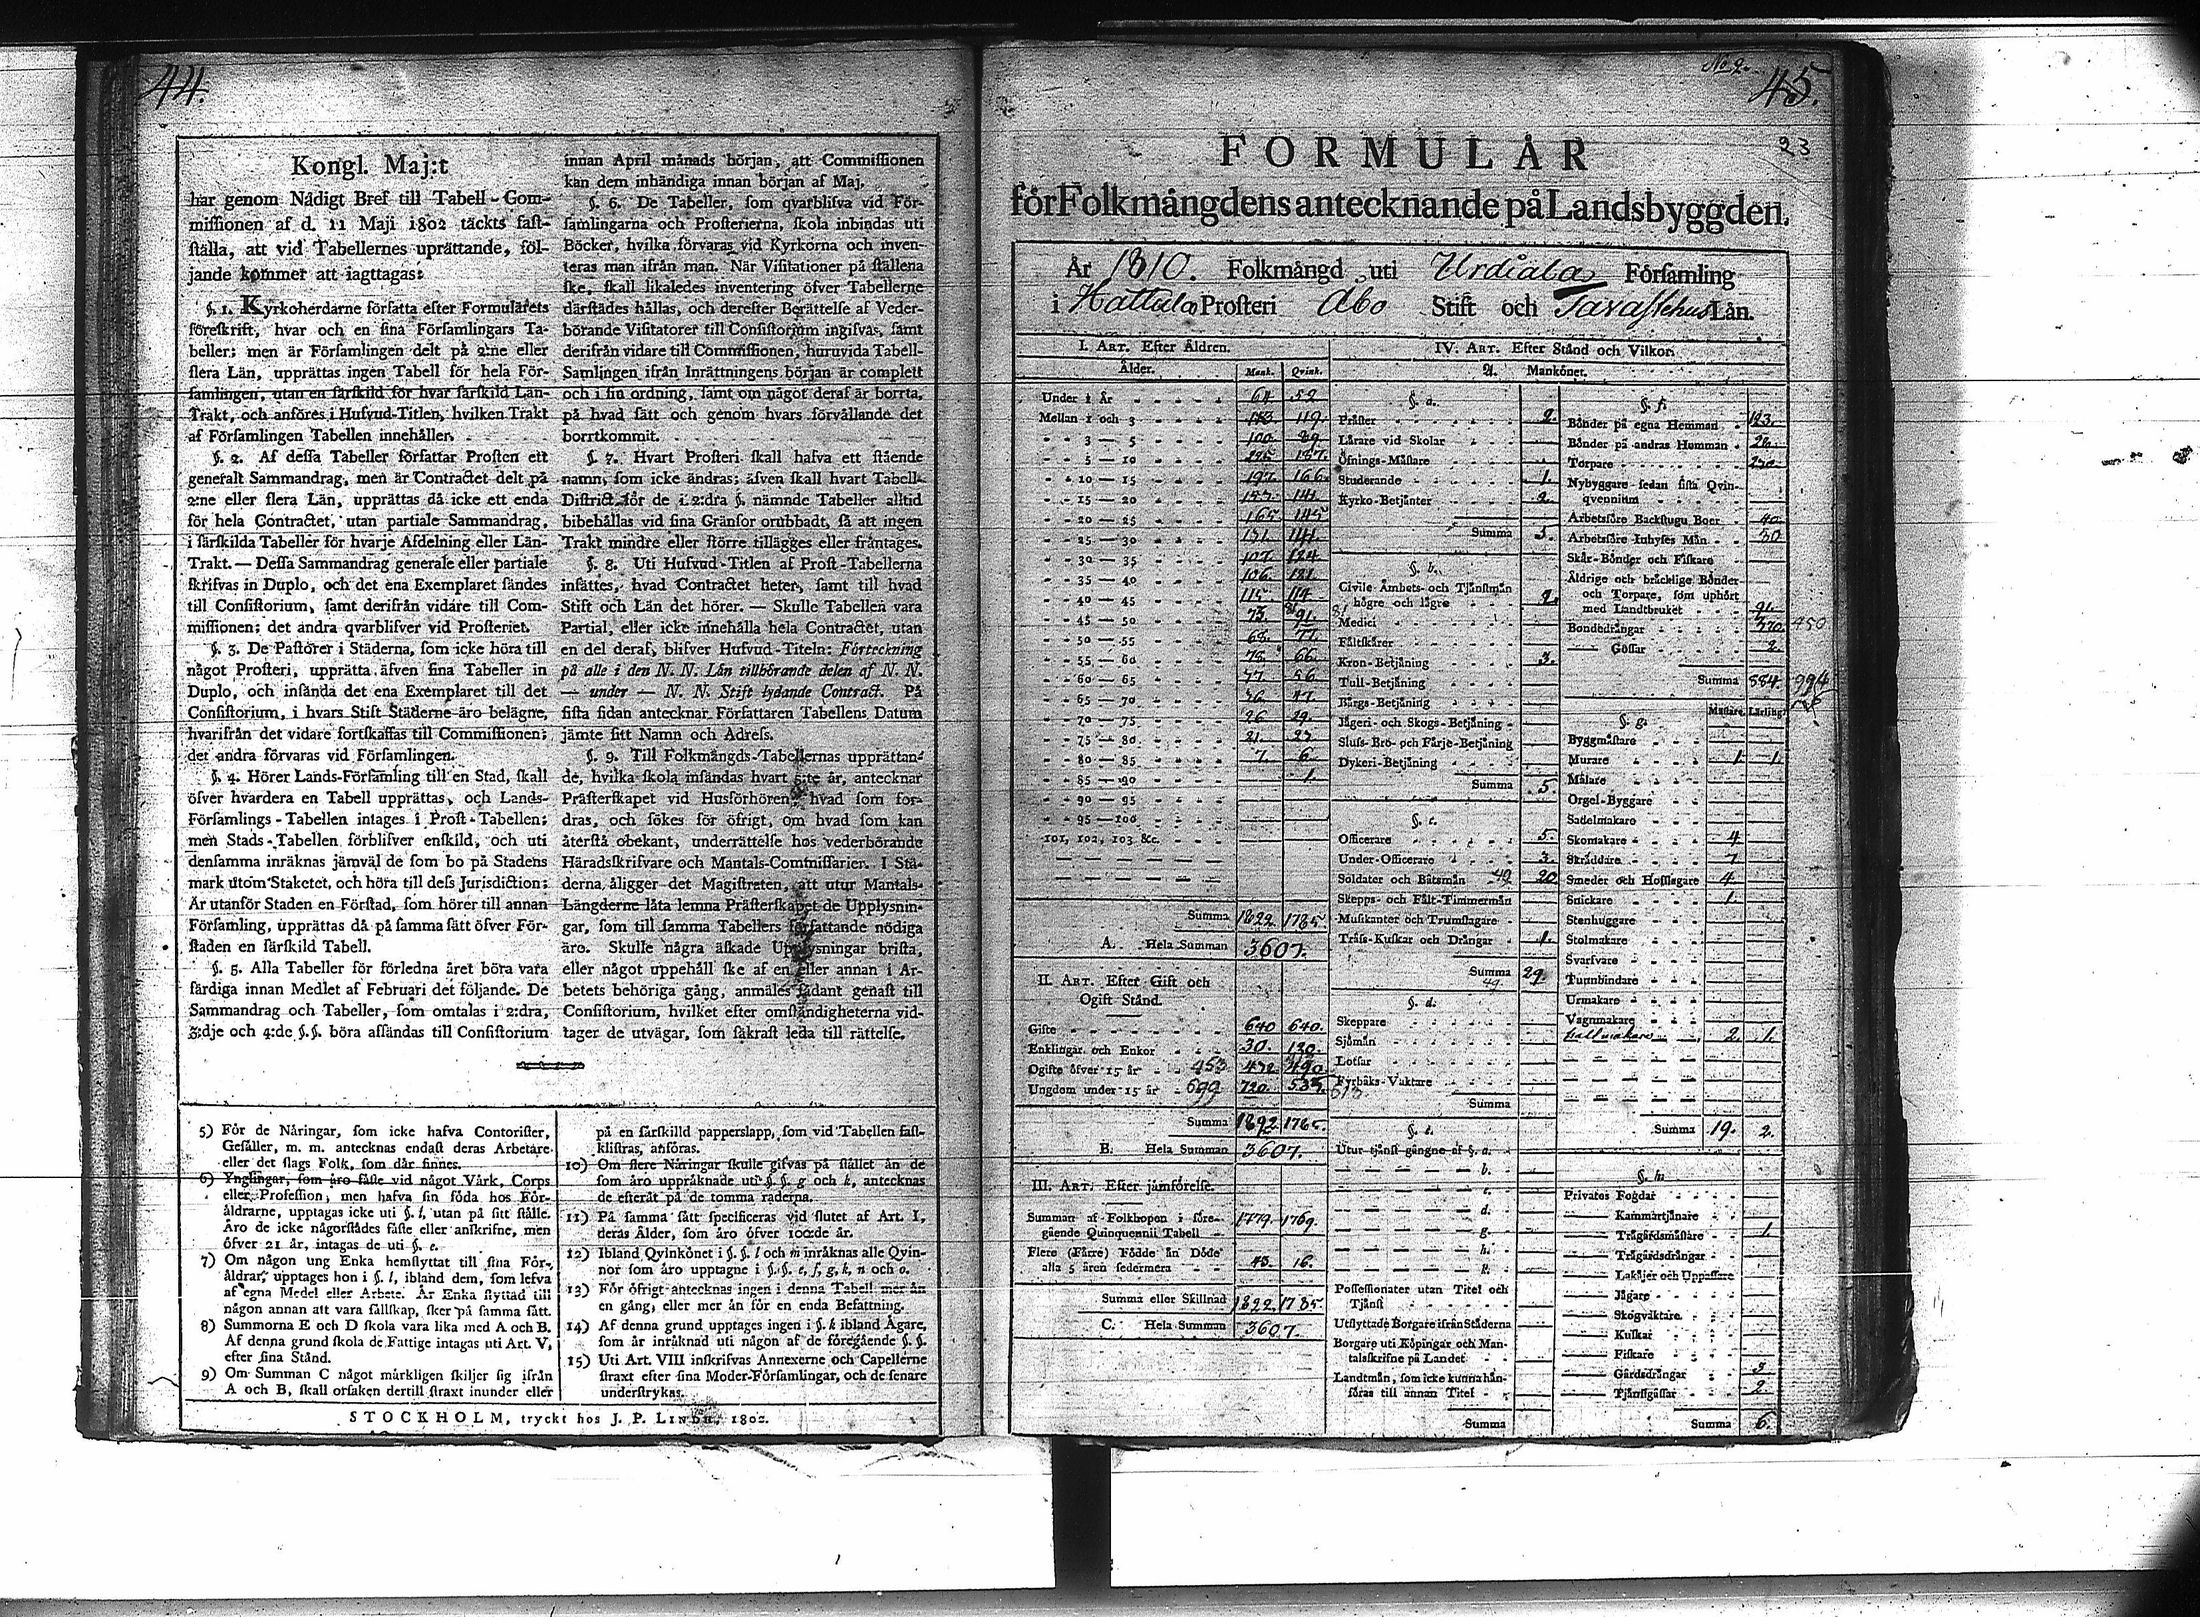 44.
Kongl. Maj:t
har genom Nådigt Bref till Tabell-Com-
missionen af d. 11 Maji 1802 täckts fast-
ställa, att vid Tabellernes uprättande, föl-
jande kommer att iagttagas:
§. 1. Kyrkoherdarne författa efter Formulärets
föreskrift, hvar och en sina Församlingars Ta-
beller; men är Församlingen delt på 2:ne eller
flera Län, upprättas ingen Tabell för hela För-
samlingen, utan en särskild för hvar särskild Län-
Trakt, och anföres i Hufvud-Titlen, hvilken Trakt
af Församlingen Tabellen innehåller.
§. 2. Af dessa Tabeller författar Prosten ett
generalt Sammandrag, men är Contractet delt på
2:ne eller flera Län, upprättas då icke ett enda
för hela Contractet, utan partiale Sammandrag,
i särskilda Tabeller för hvarje Afdelning eller Län-
Trakt. — Dessa Sammandrag generale eller partiale
skrifvas in Duplo, och det ena Exemplaret sändes
till Consistorium, samt derifrån vidare till Com-
missionen; det andra qvarblifver vid Prosteriet.
§. 3. De Pastorer i Städerna, som icke höra till
något Prosteri, upprätta äfven sina Tabeller in
Duplo, och insända det ena Exemplaret till det
Consistorium, i hvars Stift Städerne äro belägne,
hvarifrån det vidare fortskaffas till Commissionen;
det andra förvaras vid Församlingen.
§. 4. Hörer Lands-Församling till en Stad, skall
öfver hvardera en Tabell upprättas, och Lands-
Församlings-Tabellen intages i Prost-Tabellen;
men Stads-Tabellen förblifver enskild, och uti
densamma inräknas jämväl de som bo på Stadens
mark utom Staketet, och höra till dess Jurisdiction;
Är utanför Staden en Förstad, som hörer till annan
Församling, upprättas då på samma sätt öfver För-
staden en särskild Tabell.
§. 5. Alla Tabeller för förledna året böra vara
färdiga innan Medlet af Februari det följande. De
Sammandrag och Tabeller, som omtalas i 2:dra,
3:dje och 4:de §.§. böra afsändas till Consistorium
innan April månads början, att Commissionen
kan dem inhändiga innan början af Maj.
§. 6. De Tabeller, som qvarblifva vid För-
samlingarna och Prosterierna, skola inbindas uti
Böcker, hvilka förvaras vid Kyrkorna och inven-
teras man ifrån man. När Visitationer på ställena
ske, skall likaledes inventering öfver Tabellerne
därstädes hållas, och derefter Berättelse af Veder-
börande Visitatorer till Consistorium ingifvas, samt
derifrån vidare till Commissionen, huruvida Tabell-
Samlingen ifrån Inrättningens början är complett
och i sin ordning, samt om något deraf är borrta,
på hvad sätt och genom hvars förvållande det
borrtkommit.
§. 7. Hvart Prosteri skall hafva ett stående
namn, som icke ändras; äfven skall hvart Tabell-
District för de i 2:dra §. nämnde Tabeller alltid
bibehållas vid sina Gränsor orubbadt, så att ingen
Trakt mindre eller större tillägges eller fråntages.
§. 8. Uti Hufvud-Titlen af Prost-Tabellerna
insättes, hvad Contractet heter, samt till hvad
Stift och Län det hörer. — Skulle Tabellen vara
Partial, eller icke innehålla hela Contractet, utan
en del deraf, blifver Hufvud-Titeln: Förteckning
på alle i den N. N. Län tillhörande delen af N. N.
— under — N. N. Stift lydande Contract. På
sista sidan antecknar Författaren Tabellens Datum
jämte sitt Namn och Adress.
§. 9. Till Folkmängds-Tabellernas upprättan-
de, hvilka skola insändas hvart 5:te år, antecknar
Prästerskapet vid Husförhören hvad som for-
dras, och sökes för öfrigt, om hvad som kan
återstå obekant, underrättelse hos vederbörande
Häradsskrifvare och Mantals-Commissarier. I Stä-
derna åligger det Magistraten, att utur Mantals-
Längderne låta lemna Prästerskapet de Upplysnin-
gar, som till samma Tabellers författande nödiga
äro. Skulle några äskade Upplysningar brista,
eller något uppehåll ske af en eller annan i Ar-
betets behöriga gång, anmäles sådant genast till
Consistorium, hvilket efter omständigheterna vid-
tager de utvägar, som säkrast leda till rättelse.
5) För de Näringar, som icke hafva Contorister,
Gesäller, m. m. antecknas endast deras Arbetare
eller det slags Folk, som där finnes.
6) Ynglingar, som äro fäste vid något Värk, Corps
eller Profession, men hafva sin föda hos För-
äldrarne, upptagas icke uti §. l, utan på sitt ställe.
Äro de icke någorstädes fäste eller anskrifne, men
öfver 21 år, intagas de uti §. e.
7) Om någon ung Enka hemflyttat till sina För-
äldrar, upptages hon i §. l, ibland dem, som lefva
af egna Medel eller Arbete. Är Enka flyttad till
någon annan att vara sällskap, sker på samma sätt.
8) Summorna E och D skola vara lika med A och B.
Af denna grund skola de Fattige intagas uti Art. V,
efter sina Stånd.
9) Om Summan C något märkligen skiljer sig ifrån
A och B, skall orsaken dertill straxt inunder eller
på en särskilld papperslapp, som vid Tabellen fast-
klistras, anföras.
10) Om flere Näringar skulle gifvas på stället än de
som äro uppräknade uti §.§. g och k, antecknas
de efteråt på de tomma raderna.
11) På samma sätt specificeras vid slutet af Art. I,
deras Ålder, som äro öfver 100:de år.
12) Ibland Qvinkönet i §.§. l och m inräknas alle Qvin-
nor som äro upptagne i §.§. e, f, g, k, n och o.
13) För öfrigt antecknas ingen i denna Tabell mer än
en gång, eller mer än för en enda Befattning.
14) Af denna grund upptages ingen i §. k ibland Ägare,
som är inräknad uti någon af de föregående §.§.
15) Uti Art. VIII inskrifvas Annexerne och Capellerne
straxt efter sina Moder-Församlingar, och de senare
understrykas.
STOCKHOLM, tryckt hos J. P. LINDH, 1802.
No 2. 45.
23
FORMULÅR
för Folkmängdens antecknande på Landsbyggden.
År 1810. Folkmängd uti Urdiala Församling
i Hattula Prosteri Åbo Stift och Tavastehus Län.
I. ART. Efter Åldren.
Ålder. Mank. Qvink.
Under 1 År 64 52
Mellan 1 och 3 119.
3 — 5 100. 89.
5 — 10 187.
10 — 15 197. 166.
15 — 20 141.
20 — 25 165. 145
25 — 30 151. 141.
30 — 35 107. 124
35 — 40 106. 121.
40 — 45 115. 114
45 — 50 73. 91.
50 — 55 68. 77.
55 — 60 78. 66.
60 — 65 56
65 — 70 36 47.
70 — 75 26 29.
75 — 80 21. 23.
80 — 85 7. 6
85 — 90 1.
90 — 95
95 — 100
101, 102, 103 &c.
Summa 1822. 1785.
A. Hela Summan 3607.
II. ART. Efter Gift och
Ogift Stånd.
Gifte 640 640.
Enklingar och Enkor 30. 120.
Ogifte öfver 15 år 453 432 490
Ungdom under 15 år 699 720. 535. 613
Summa 1822 1785.
B. Hela Summan 3607.
III. ART. Efter jämförelse.
Summan af Folkhopen i före-
gående Quinquennii Tabell 1779. 1769.
Flere (Färre) Födde än Döde
alla 5 åren sedermera 43. 16.
Summa eller Skillnad 1822. 1785.
C. Hela Summan 3607.
IV. ART. Efter Stånd och Vilkor.
A. Mankönet.
§. a.
Präster 2.
Lärare vid Skolar
Öfnings-Mästare
Studerande 1.
Kyrko-Betjänter 2.
Summa 5.
§. b.
Civile Ämbets- och Tjänstmän
högre och lägre 2.
Medici
Fältskärer
Kron-Betjäning 3.
Tull-Betjäning
Bärgs-Betjäning
Jägeri- och Skogs-Betjäning
Sluss- Bro- och Färje-Betjäning
Dykeri-Betjäning
Summa 5.
§. c.
Officerare 5.
Under-Officerare 3.
Soldater och Båtsmän 40 20
Skepps- och Fält-Timmermän
Musikanter och Trumslagare
Träss-Kuskar och Drängar 1.
Summa 29.
49
§. d.
Skeppare
Sjömän
Lotsar
Fyrbåks-Vaktare
Summa
§. e.
Utur tjänst gångne af §. a.
b.
c.
d.
g.
h.
Possessionater utan Titel och
Tjänst
Utflyttade Borgare ifrån Städerna
Borgare uti Köpingar och Man-
talsskrifne på Landet
Landtmän, som icke kunna hän-
föras till annan Titel
Summa
§. f.
Bönder på egna Hemman 123.
Bönder på andras Hemman 26.
Torpare
Nybyggare sedan sista Qvin-
qvennium
Arbetsföre Backstugu Boer 40.
Arbetsföre Inhyses Män 30
Skär-Bönder och Fiskare
Äldrige och bräcklige Bönder
och Torpare, som uphört
med Landtbruket 91.
Bondedrängar 370. 450
Gossar 2.
Summa 884. 994
§. g. Mästare. Lärling
Byggmästare
Murare 1. 1.
Målare
Orgel-Byggare
Sadelmakare
Skomakare 4.
Skräddare 7
Smeder och Hofslagare 4.
Snickare 1.
Stenhuggare
Stolmakare
Svarfvare
Tunnbindare
Urmakare
Vagnmakare
2. 1.
Summa 19. 2.
§. h.
Privates Fogdar
Kammartjänare
Trägårdsmästare 1.
Trägårdsdrängar
Lakäjer och Uppassare
Jägare
Skogvaktare
Kuskar
Fiskare
Gårdsdrängar 3
Tjänstgåssar 2.
Summa 6.